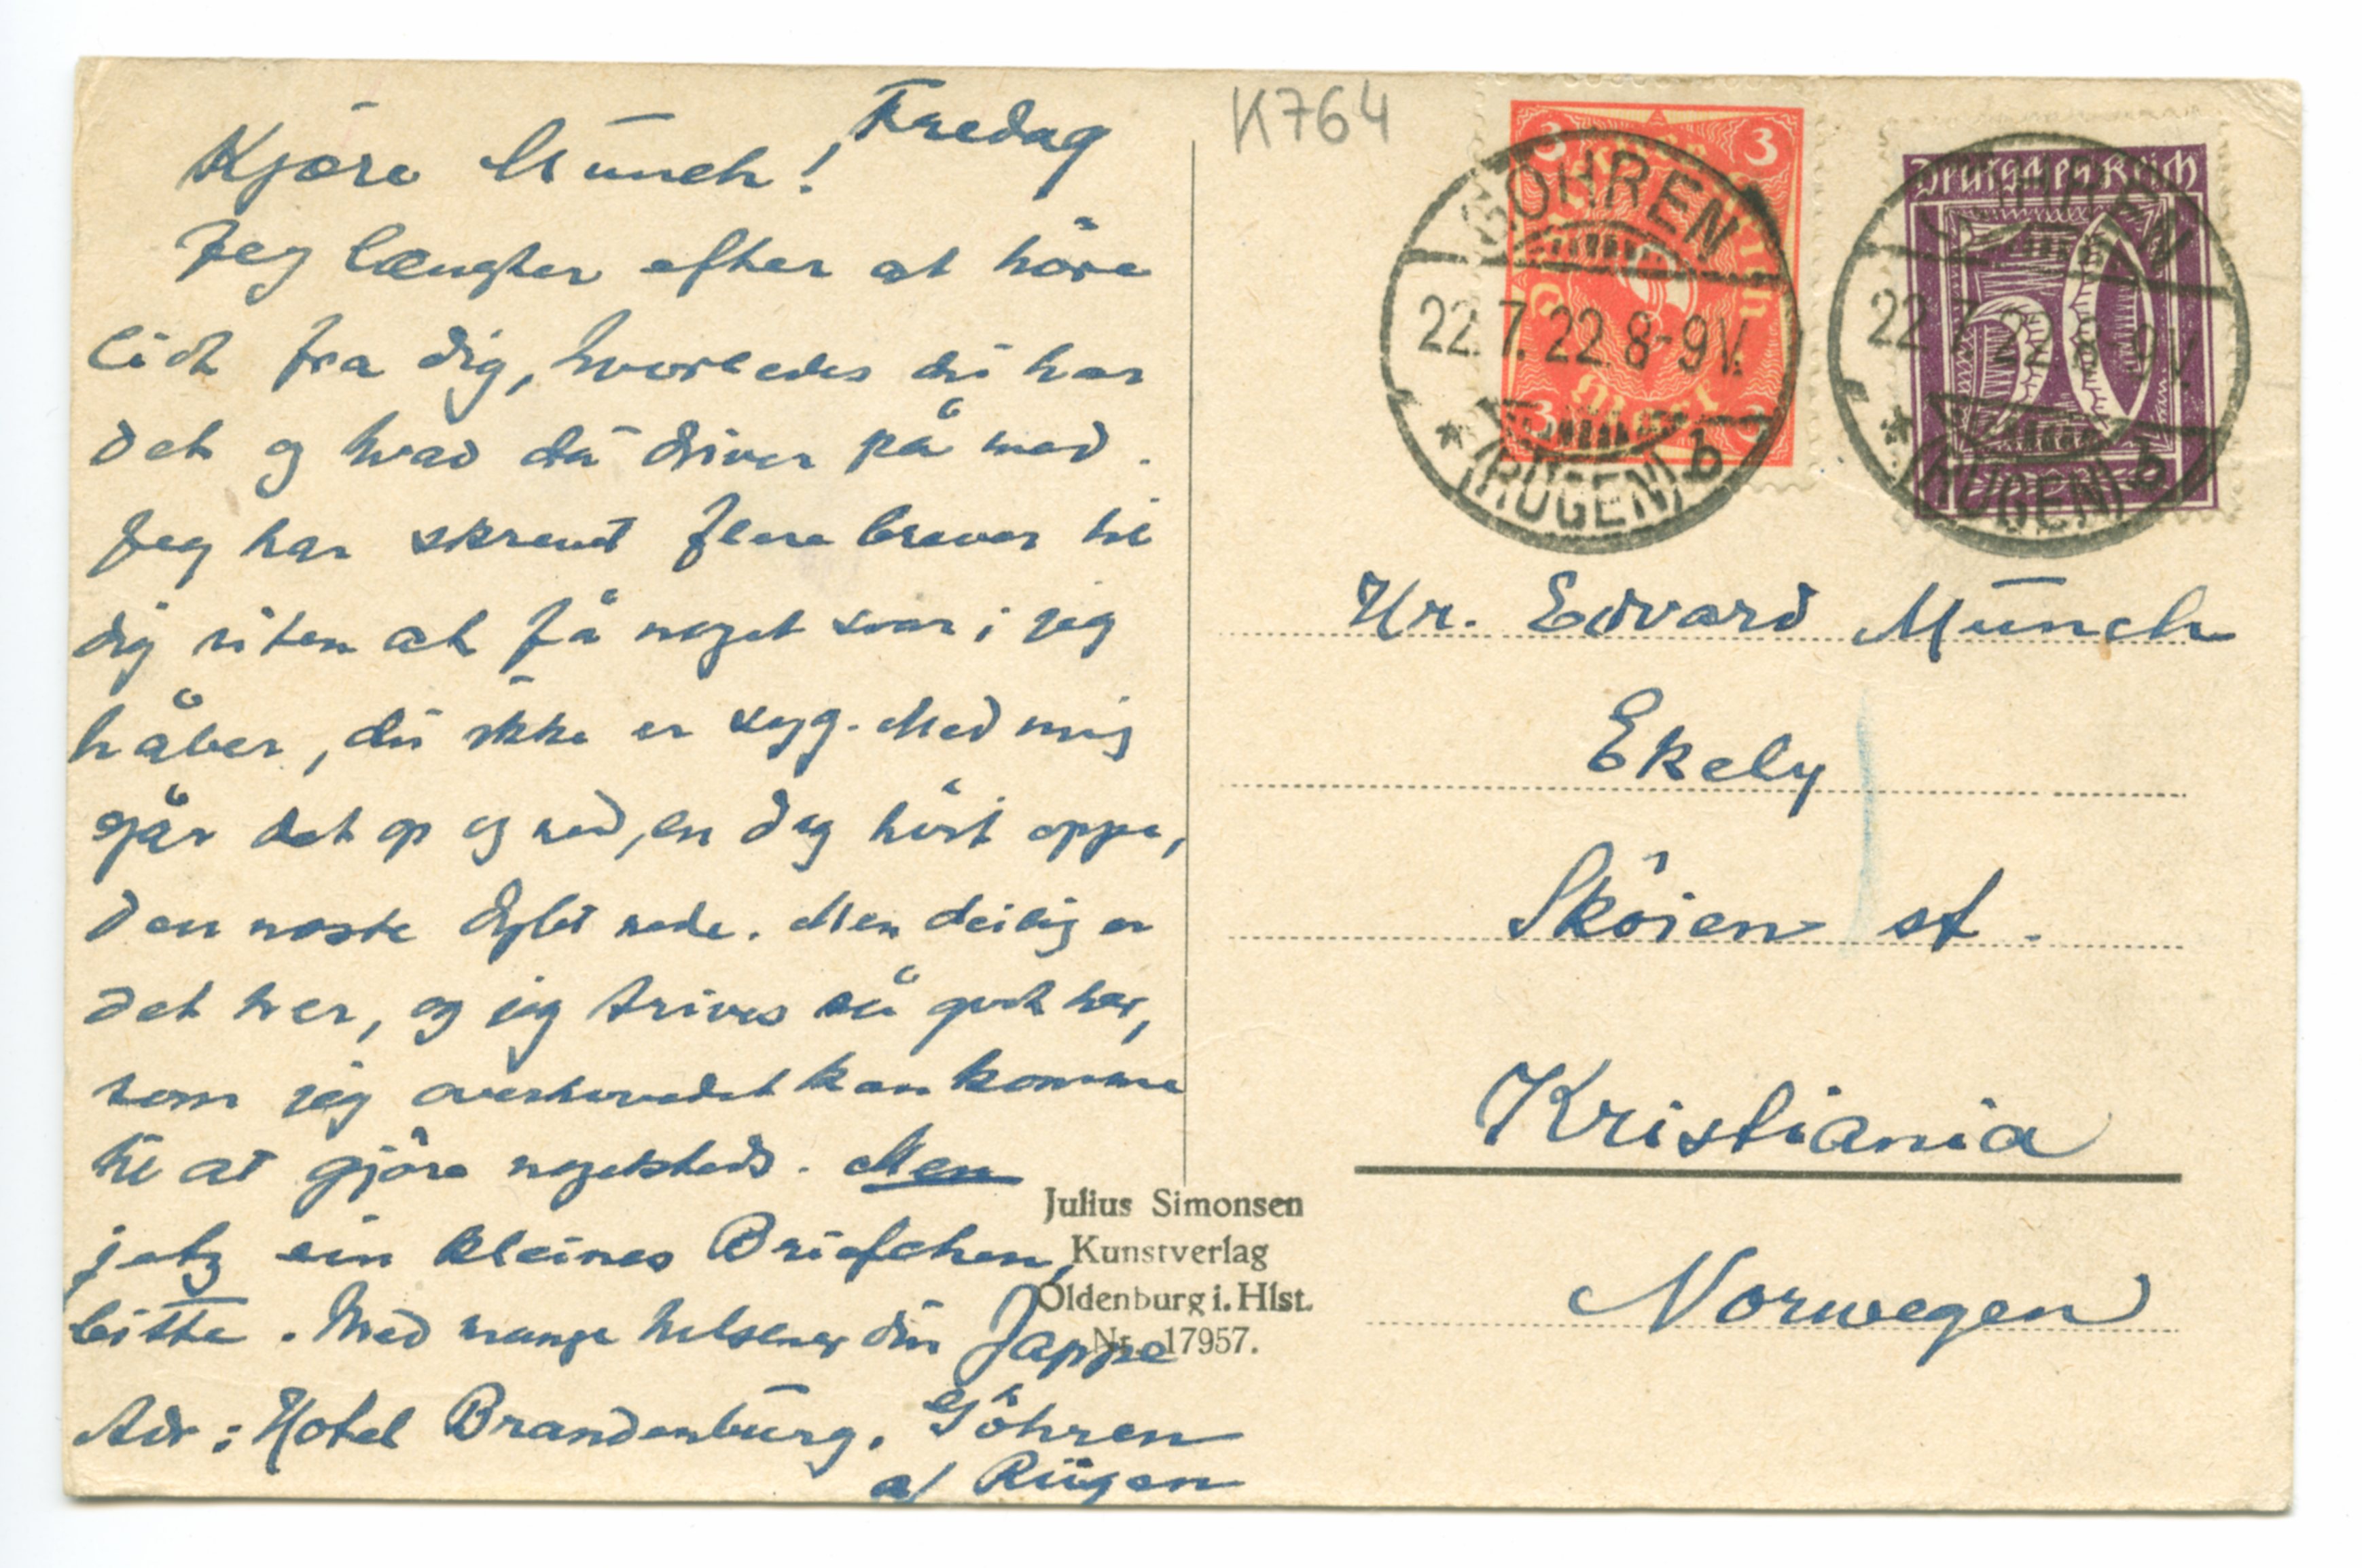 Fredag
Kjære Munch!
Jeg længter efter at höre
lidt fra dig, hvorledes du har
det og hvad du driver på med.
Jeg har skrevet flere brever til
dig uten at få noget svar; jeg
håber, du ikke er syg. Med mig
går det op og ned, en dag höit oppe,
den næste dybt nede. Men deilig er
det her, og jeg trives så godt her,
som jeg overhovedet kan komme
til at gjöre nogetsteds. Men
jetz ein kleines Briefchen,
bitte. Med mange hilsener din Jappe
Adr: Hotel Brandenburg. Göhren
a/ Rügen
K764
3 3
Deutsches Reich
3 Mark 3
GÖHREN
22.7.22.8-9V.
* (RÜGEN) b
Deutsches Reich
50
GÖHREN
22.7.22.8-9V.
* (RÜGEN) b
Hr. Edvard Munch
Ekely
Sköien st.
Kristiania
Norwegen
Julius Simonsen
Kunstverlag
Oldenburg i. Hlst.
Nr. 17957.